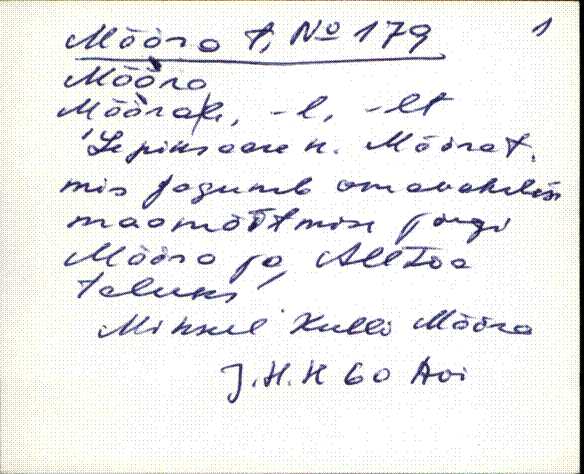 Mõõra t, № 179 1
Mõõra
Mõõrale, -l, -lt
Mõõrat.
mis jaguneb omavahelise
maamõõtmise järgi
Mõõra ja Alltoa
taluks
Mihkel Kulli Mõõra
J.H.H 60 Aoi